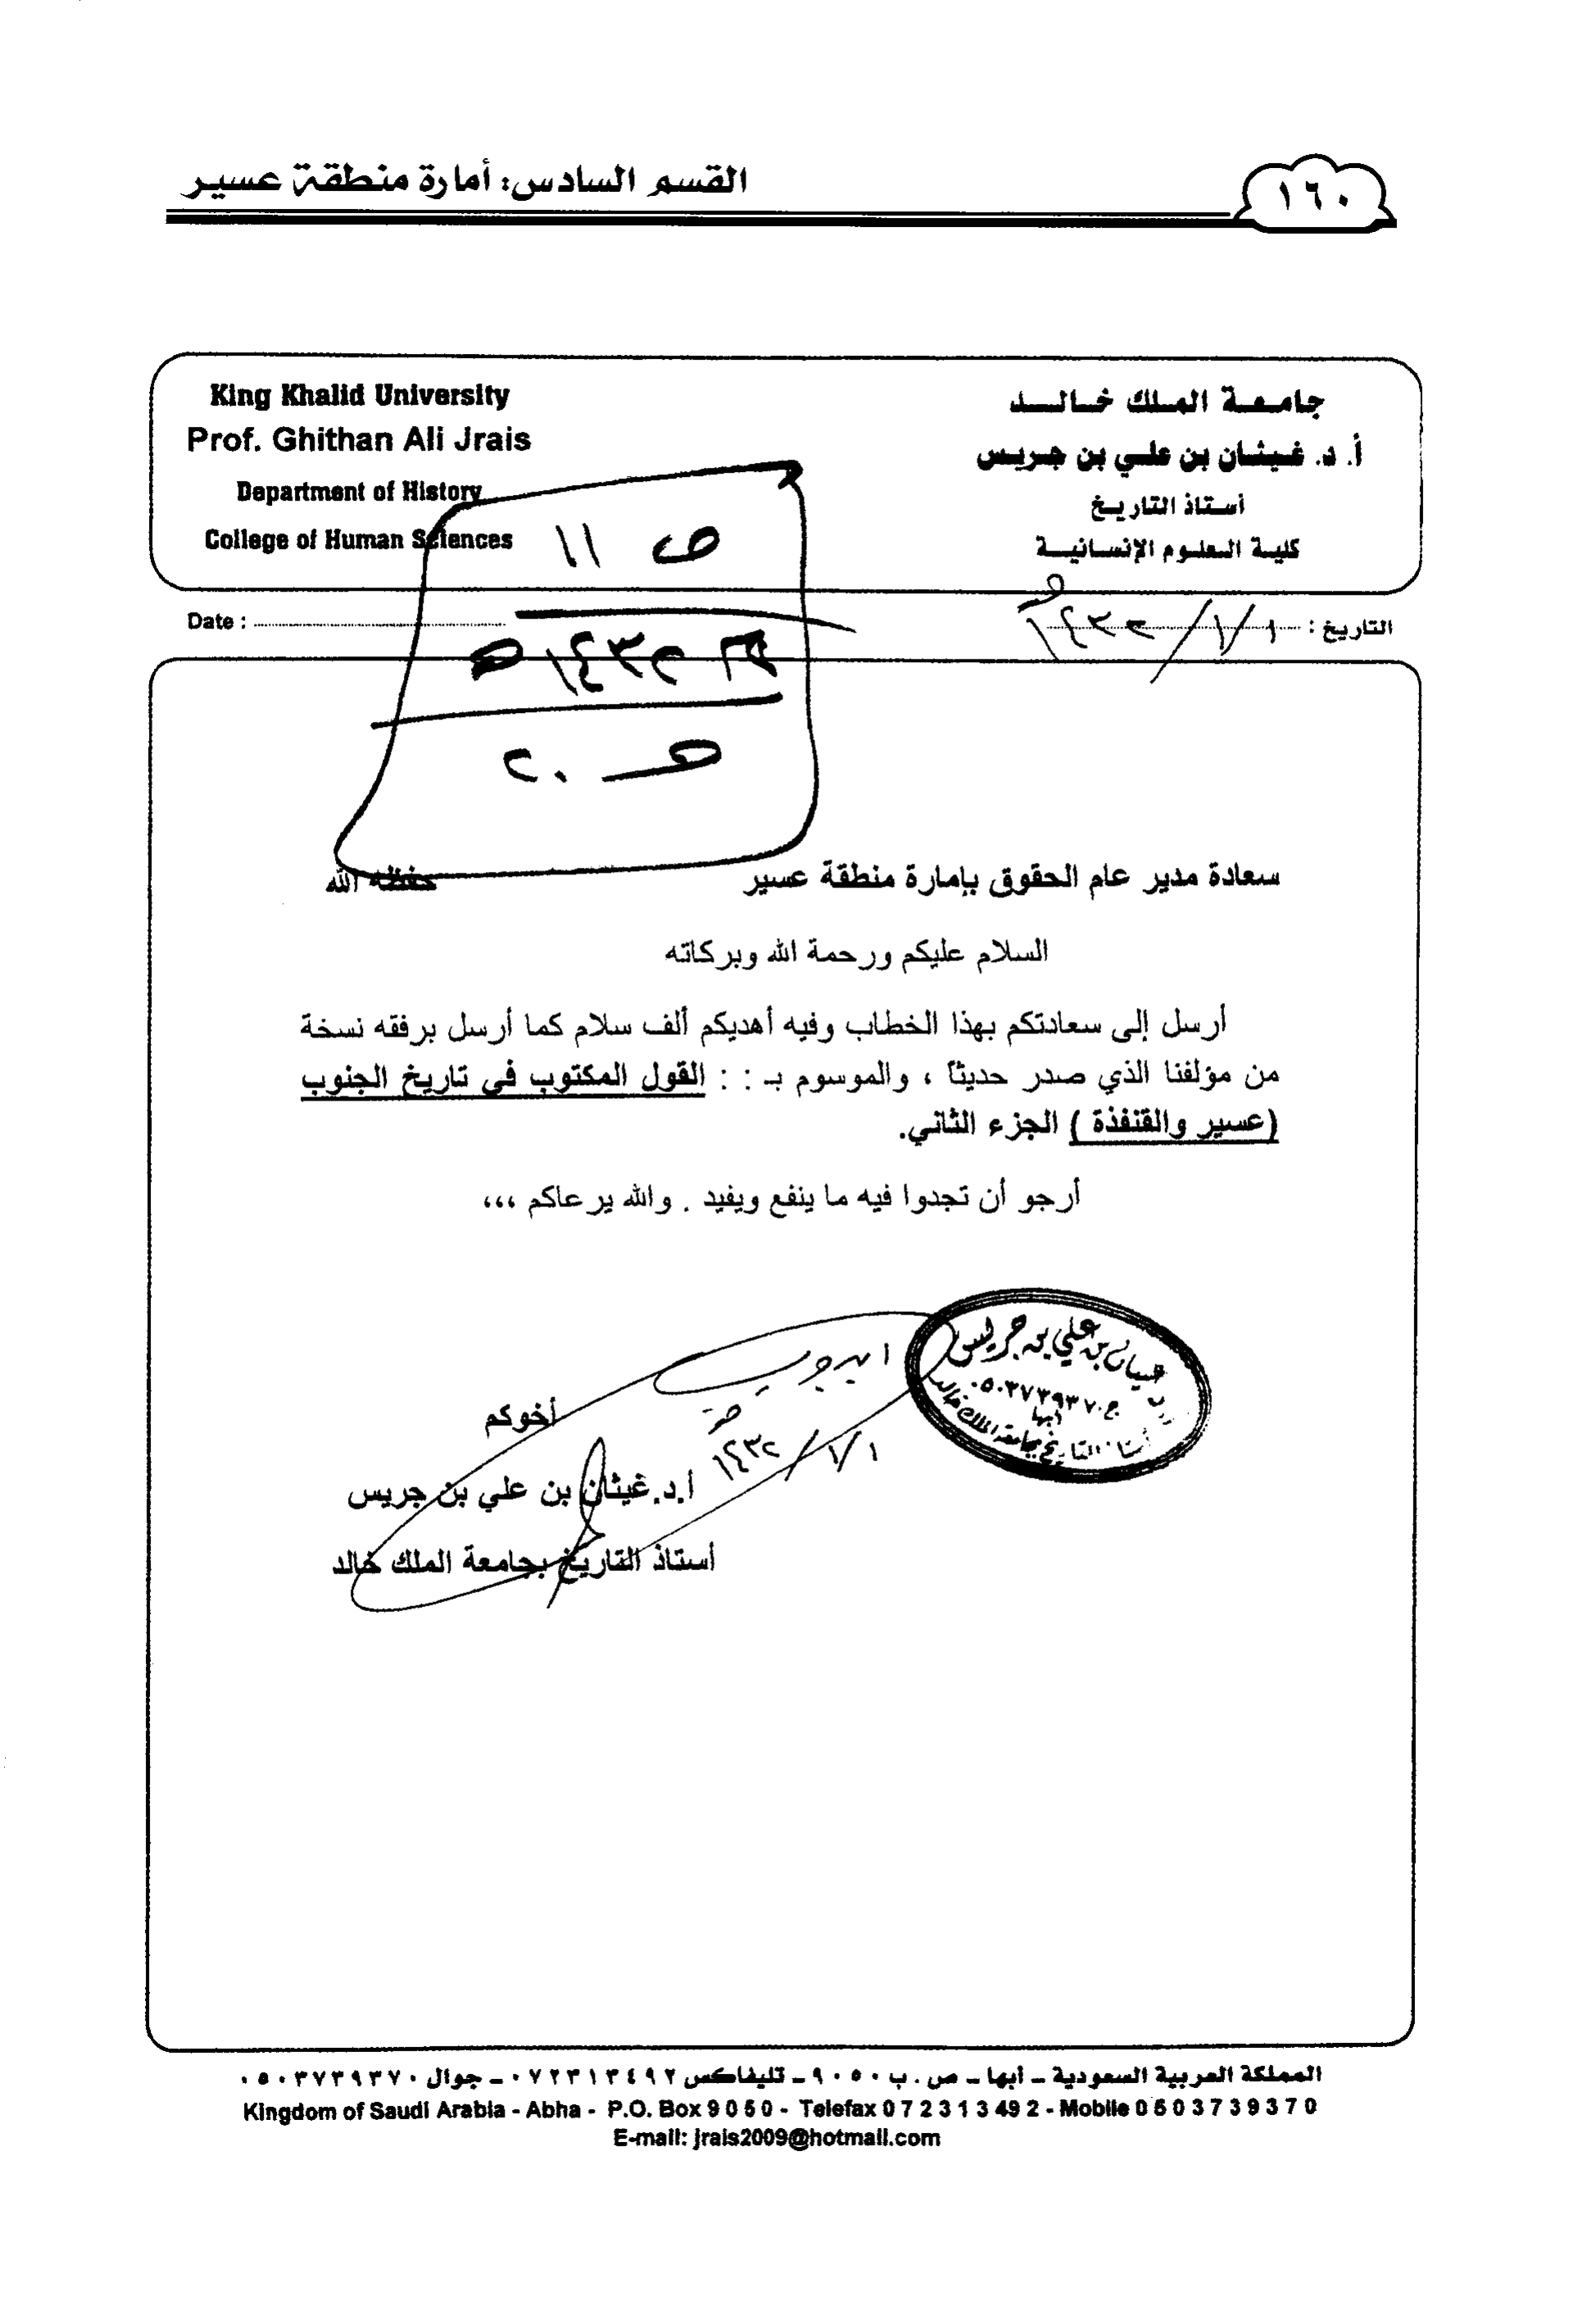 ١٦٠
القسم السادس: أمارة منطقة عسير
جامعة الملك خالد
أ. د. غيثان بن علي بن جريس
أستاذ التاريخ
كلية العلوم الإنسانية
King Khalid University
Prof. Ghithan Ali Jrais
Department of History
College of Human Sciences
ص ١١
١٤٣٢ هـ
٢٠
التاريخ : ١/١/١٤٣٢ هـ
Date :
سعادة مدير عام الحقوق بإمارة منطقة عسير حفظه الله
السلام عليكم ورحمة الله وبركاته
أرسل إلى سعادتكم بهذا الخطاب وفيه أهديكم ألف سلام كما أرسل برفقه نسخة
من مؤلفنا الذي صدر حديثاً ، والموسوم بـ : : القول المكتوب في تاريخ الجنوب
(عسير والقنفذة ) الجزء الثاني.
أرجو أن تجدوا فيه ما ينفع ويفيد . والله يرعاكم ،،،
بن علي بن جريس
ج ٠٥٠٣٧٣٩٣٧٠
أبها
أستاذ التاريخ بجامعة الملك خالد
١/١/١٤٣٢
أخوكم
أ.د.غيثان بن علي بن جريس
أستاذ التاريخ بجامعة الملك خالد
المملكة العربية السعودية – أبها – ص . ب ٩٠٥٠ – تليفاكس ٠٧٢٣١٣٤٩٢ – جوال ٠٥٠٣٧٣٩٣٧٠
Kingdom of Saudi Arabia - Abha - P.O. Box 9 0 5 0 - Telefax 0 7 2 3 1 3 49 2 - Mobile 0 5 0 3 7 3 9 3 7 0
E-mail: jrais2009@hotmail.com